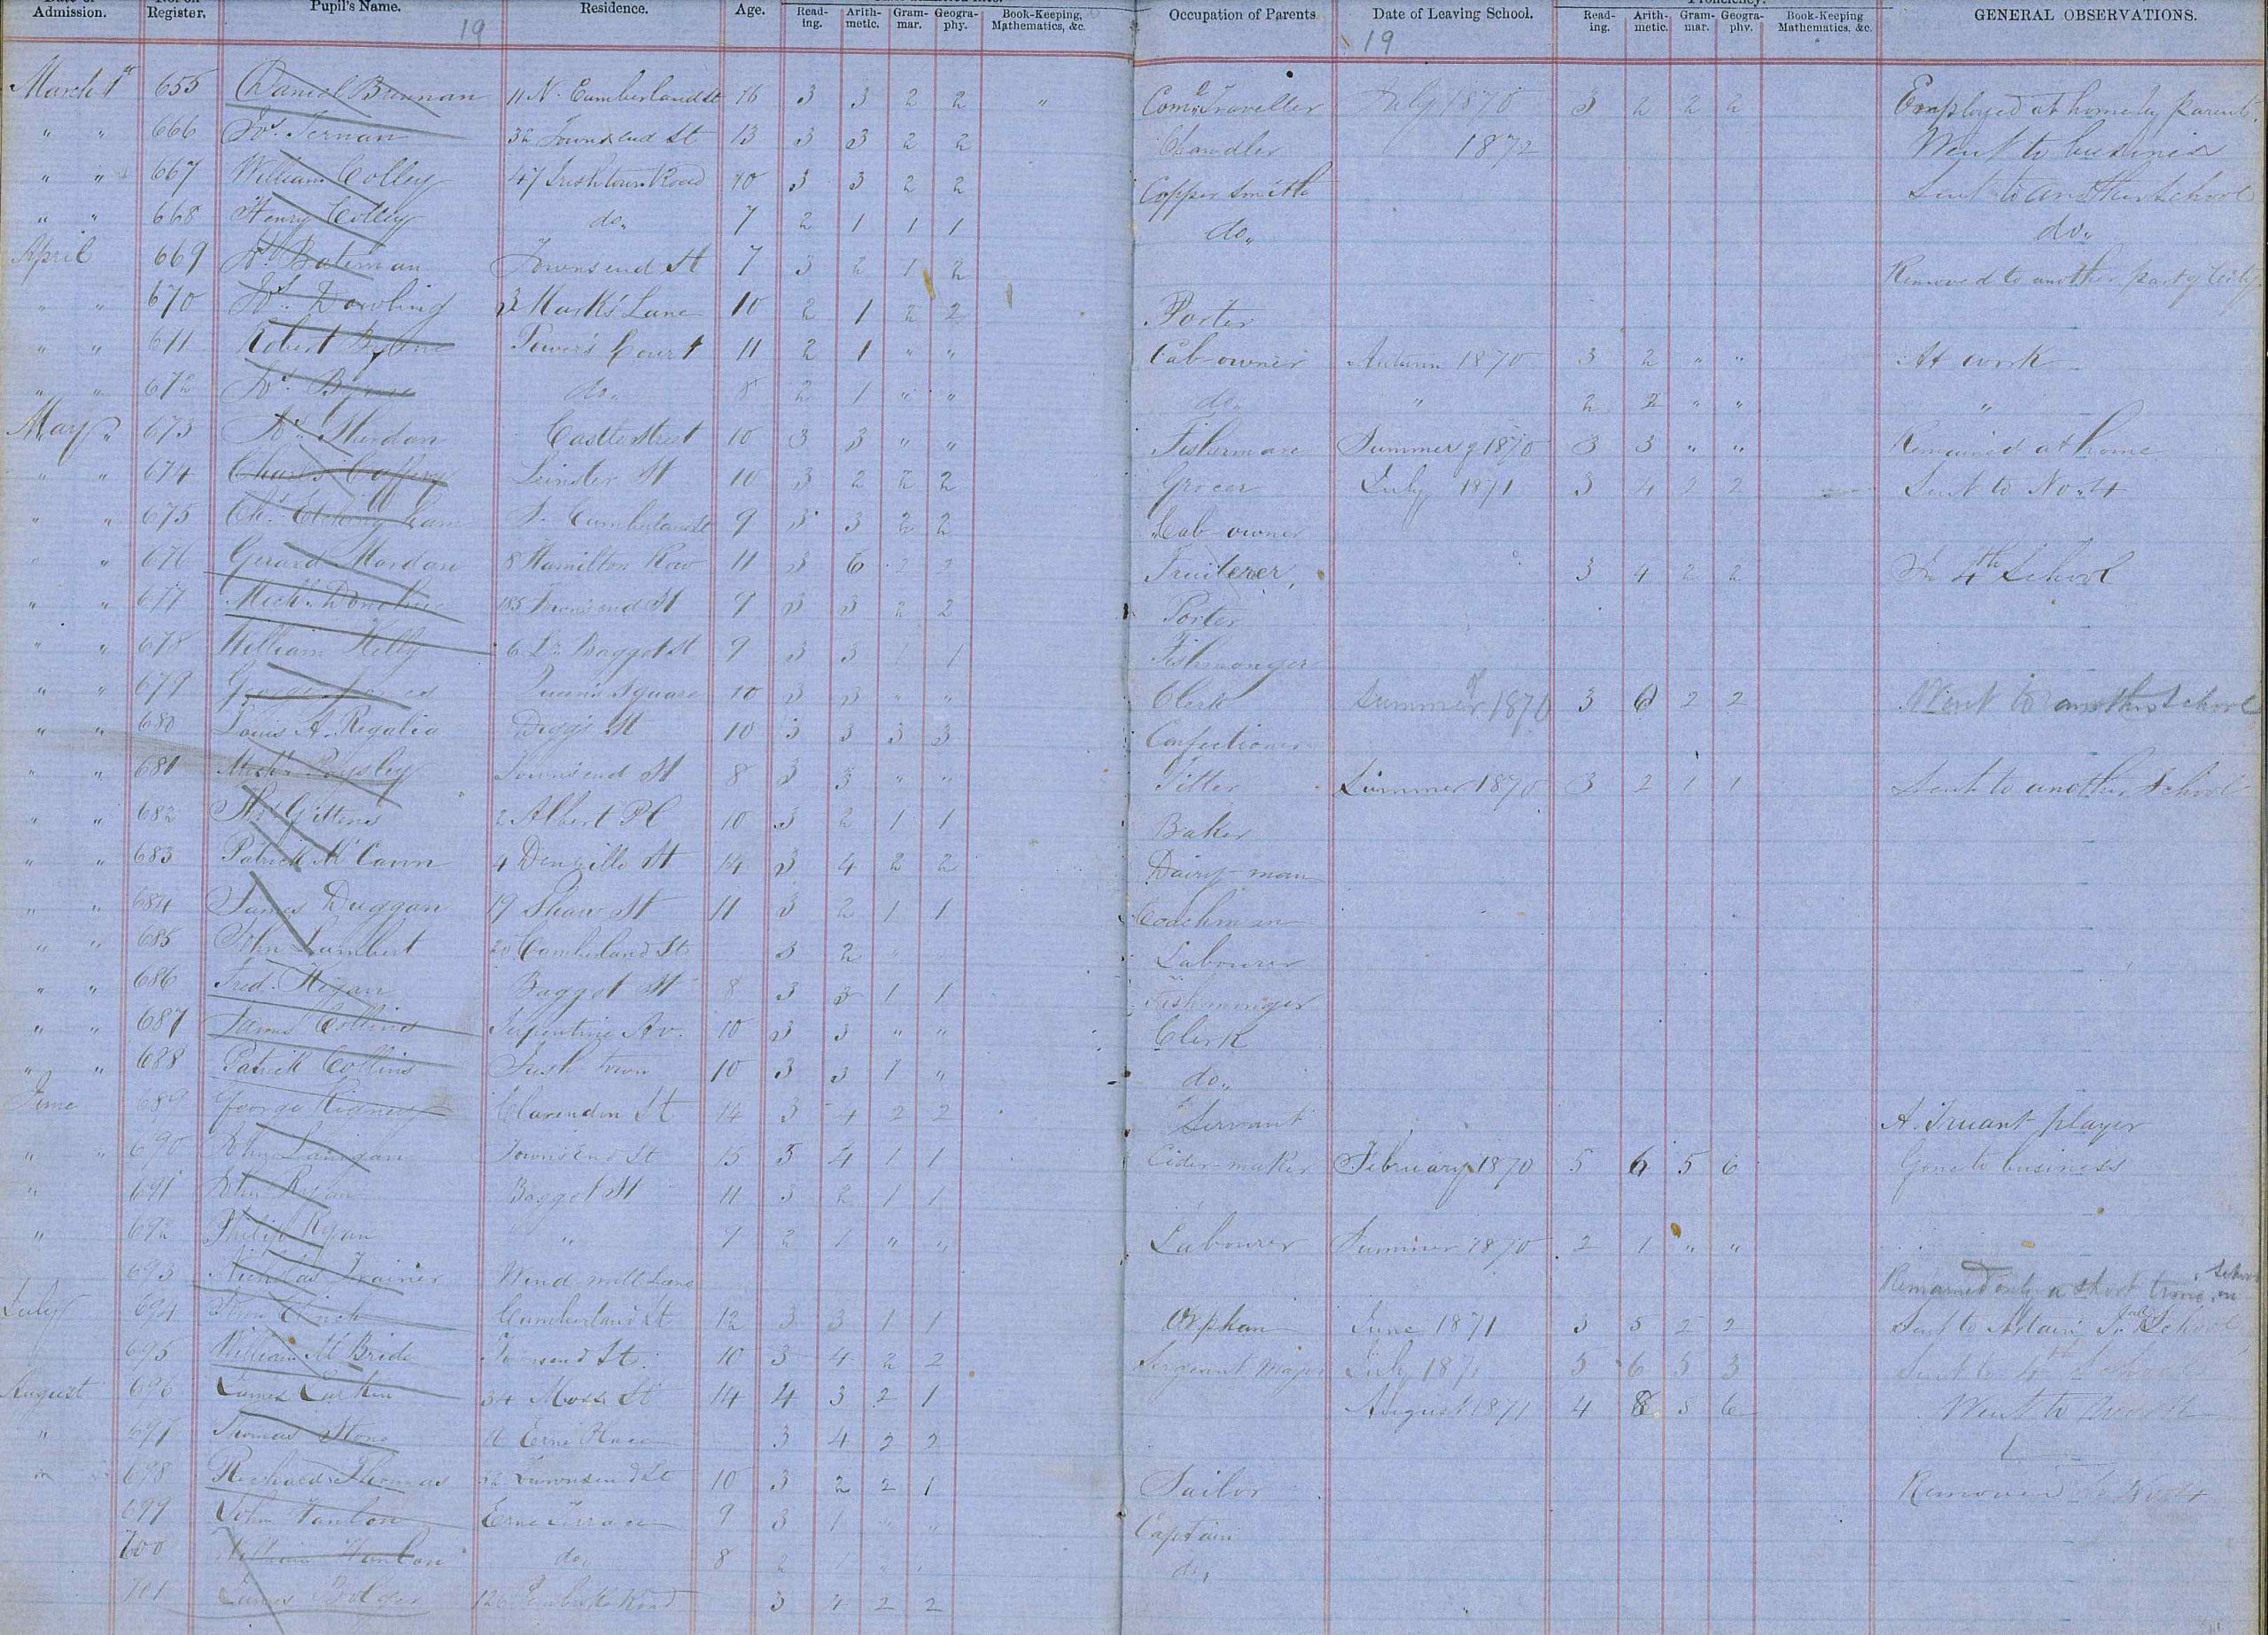 Admission. Register. Pupil's Name. Residence. Age. Read-ing. Arith-metic. Gram-mar. Geogra-phy. Book-Keeping, Mathematics, &c. Occupation of Parents Date of Leaving School. Read-ing. Arith-metic. Gram-mar. Geogra-phy. Book-Keeping Mathematics, &c. GENERAL OBSERVATIONS.
19 19
March 1st 655 Daniel Brennan 11 N. Cumberland St 16 3 3 2 2 " Coml. Traveller July 1870 3 2 2 2 Employed at home by parents
" " 666 Jos. Ternan 32 Townsend St 13 3 3 2 2 Chandler 1872 Went to business
" " 667 William Colley 47 Irishtown Road 10 3 3 2 2 Copper smith Sent to another School
" " 668 Henry Colley do. 7 2 1 1 1 do. do.
April 669 Bateman Townsend St 7 3 2 1 2 Removed to another part of City
" " 670 Dowling 3 Mark's Lane 10 2 1 2 2 Porter
" " 671 Robert Byrne Power's Court 11 2 1 " " Cab-owner Autumn 1870 3 2 " " At work
" " 672 Byrne do. 8 2 1 " " do. " 2 2 " " "
May " 673 Castle Street 10 3 3 " " Fisherman Summer of 1870 3 3 " " Remained at home
" " 674 Charles Caffrey Leinster St 10 3 2 2 2 Grocer July 1871 3 4 2 2 Sent to No. 4
" " 675 Cumberland St 9 3 3 2 2 Cab owner
" " 676 Gerard Mordan 8 Hamilton Row 11 3 6 2 2 Fruiterer, 3 4 2 2 In 4th School
" " 677 Mich. Donohue 185 Townsend St 9 3 3 2 2 Porter
" " 678 William Kelly 6 Lr. Baggot St 9 3 3 1 1 Fishmonger
" " 679 Queen's Square 10 3 3 " " Clerk Summer of 1870 3 6 2 2 Went to another School
" " 680 Louis A. Regalia Digges St 10 3 3 3 3 Confectioner
" " 681 Townsend St 8 3 3 " " Fitter Summer 1870 3 2 1 1 Sent to another School
" " 682 Thos. Gittens 2 Albert Pl 10 3 2 1 1 Baker
" " 683 Patrick McCann 4 Denzille St 14 3 4 2 2 Dairy-man
" " 684 James Duggan 19 Shaw St 11 3 2 1 1 Coachman
" " 685 John Lambert 20 Cumberland St 3 2 " " Labourer
" " 686 Fred. Hogan Baggot St 8 3 3 1 1 Fishmonger
" " 687 James Collins Serpentine Av. 10 3 3 " " Clerk
" " 688 Patrick Collins Irish town 10 3 3 1 " do.
June 689 George Kidney Clarendon St 14 3 4 2 2 Servant A Truant player
" " 690 John Lanigan Townsend St 15 5 4 1 1 Cider-maker February 1870 5 6 5 6 Gone to business
" 691 John Ryan Baggot St 11 3 2 1 1
" 692 Philip Ryan " 9 2 1 " " Labourer Summer 1870 2 1 " "
693 Nicholas Trainer Wind-mill Lane Remained only a short time in School
July 694 Cumberland St 12 3 3 1 1 Orphan June 1871 3 5 2 2 Sent to Artain School
695 William McBride Townsend St. 10 3 4 2 2 Sergeant Major July 1871 5 6 5 3 Sent to 4th School
August 696 James Larkin 34 Moss St 14 4 3 2 1 August 1871 4 8 5 6 Went to work
" 697 Thomas Stone Erne Place 3 4 2 2
" 698 Richard Thomas 32 Townsend St 10 3 2 2 1 Sailor Removed to No. 4
699 John Hanlon Erne Terrace 9 3 1 " " Captain
700 William Hanlon do. 8 2 1 " " do.
701 James Bolger 126 Pembroke Road 3 4 2 2